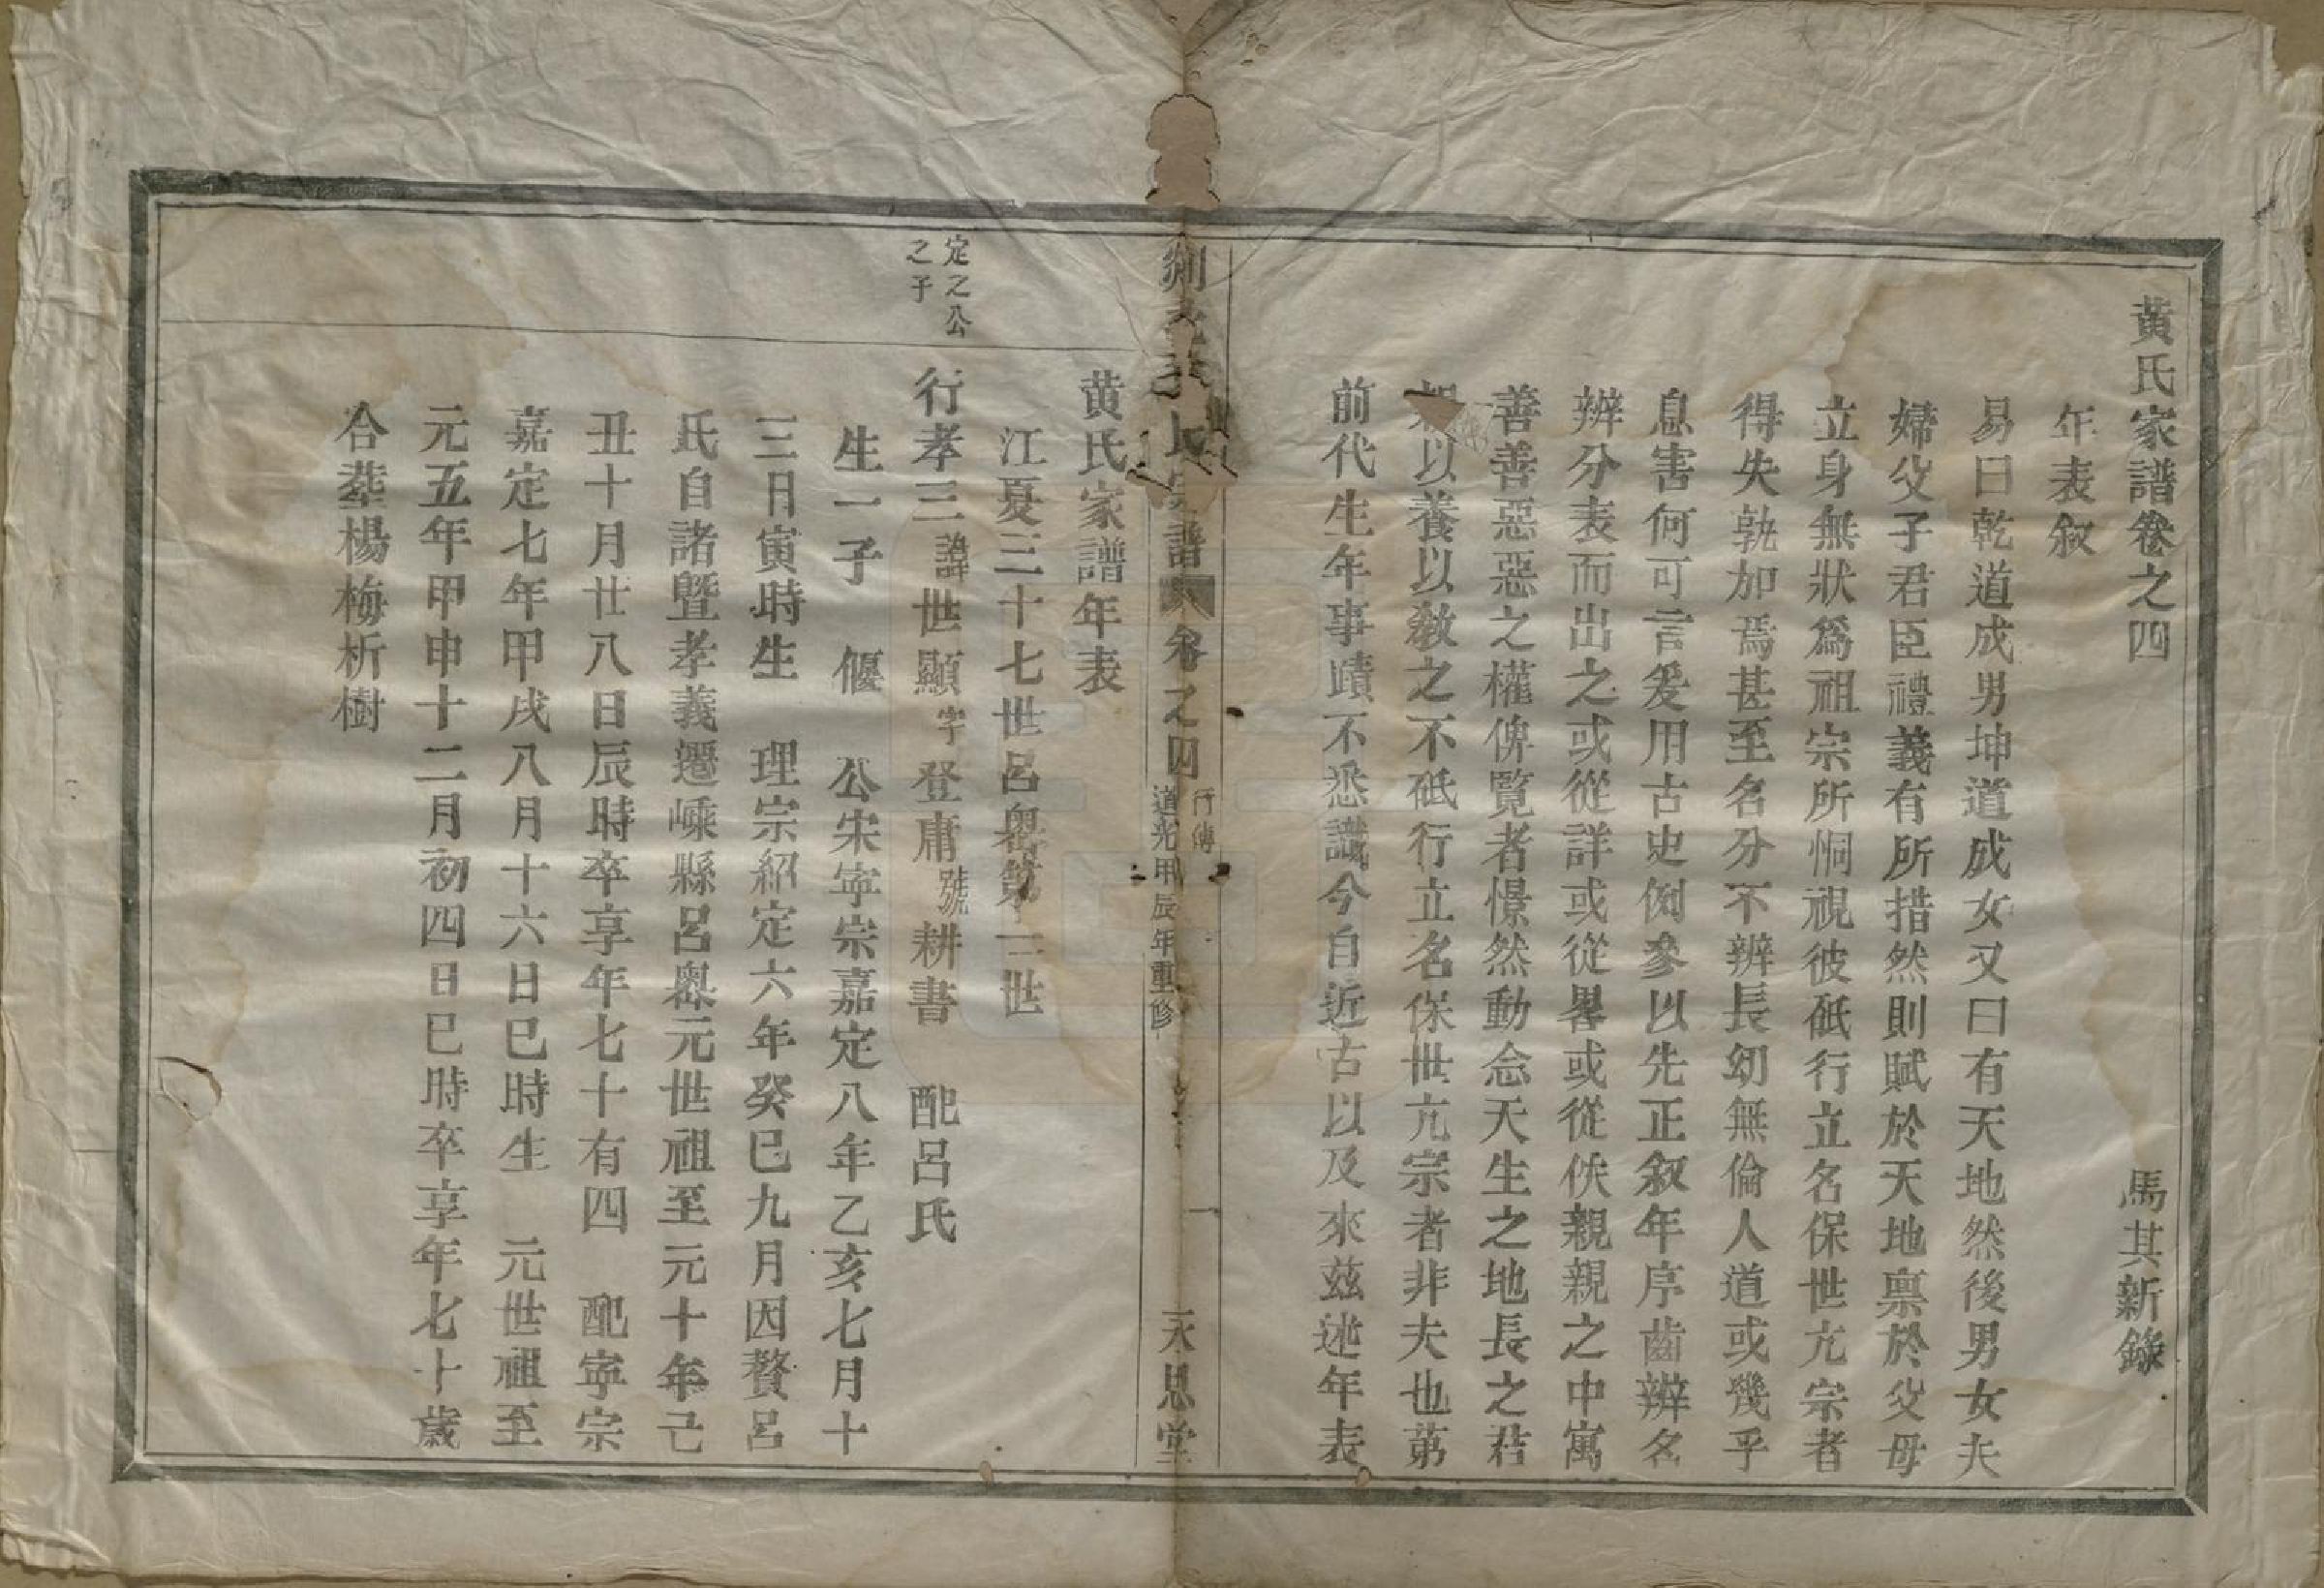 黃氏家譜卷之四
馬其新錄
年表叙
易曰乾道成男坤道成女又曰有天地然後男女夫
婦父子君臣禮義有所措然則賦於天地禀於父母
立身無狀爲祖宗所恫視彼砥行立名保世亢宗者
得失孰加焉甚至名分不辨長幼無倫人道或幾乎
息害何可言爰用古史例參以先正叙年序齒辨名
辨分表而出之或從詳或從畧或從佚親親之中寓
善善惡惡之權俾覧者憬然動念天生之地長之君
親以養以敎之不砥行立名保世亢宗者非夫也第
前代生年事蹟不悉識今自近古以及來茲述年表
氏 譜 卷之四
行傳
道光甲辰年重修
一
永思堂
黃氏家譜年表
江夏三十七世呂嶴第三世
定之公
之子
行孝三 諱世顯 字登庸 號耕書 配呂氏
生一子 偃 公宋寕宗嘉定八年乙亥七月十
三日寅時生 理宗紹定六年癸巳九月因贅呂
氏自諸暨孝義遷嵊縣呂嶴元世祖至元十年己
丑十月廿八日辰時卒享年七十有四 配寕宗
嘉定七年甲戌八月十六日巳時生 元世祖至
元五年甲申十二月初四日巳時卒享年七十歲
合塟楊梅析樹